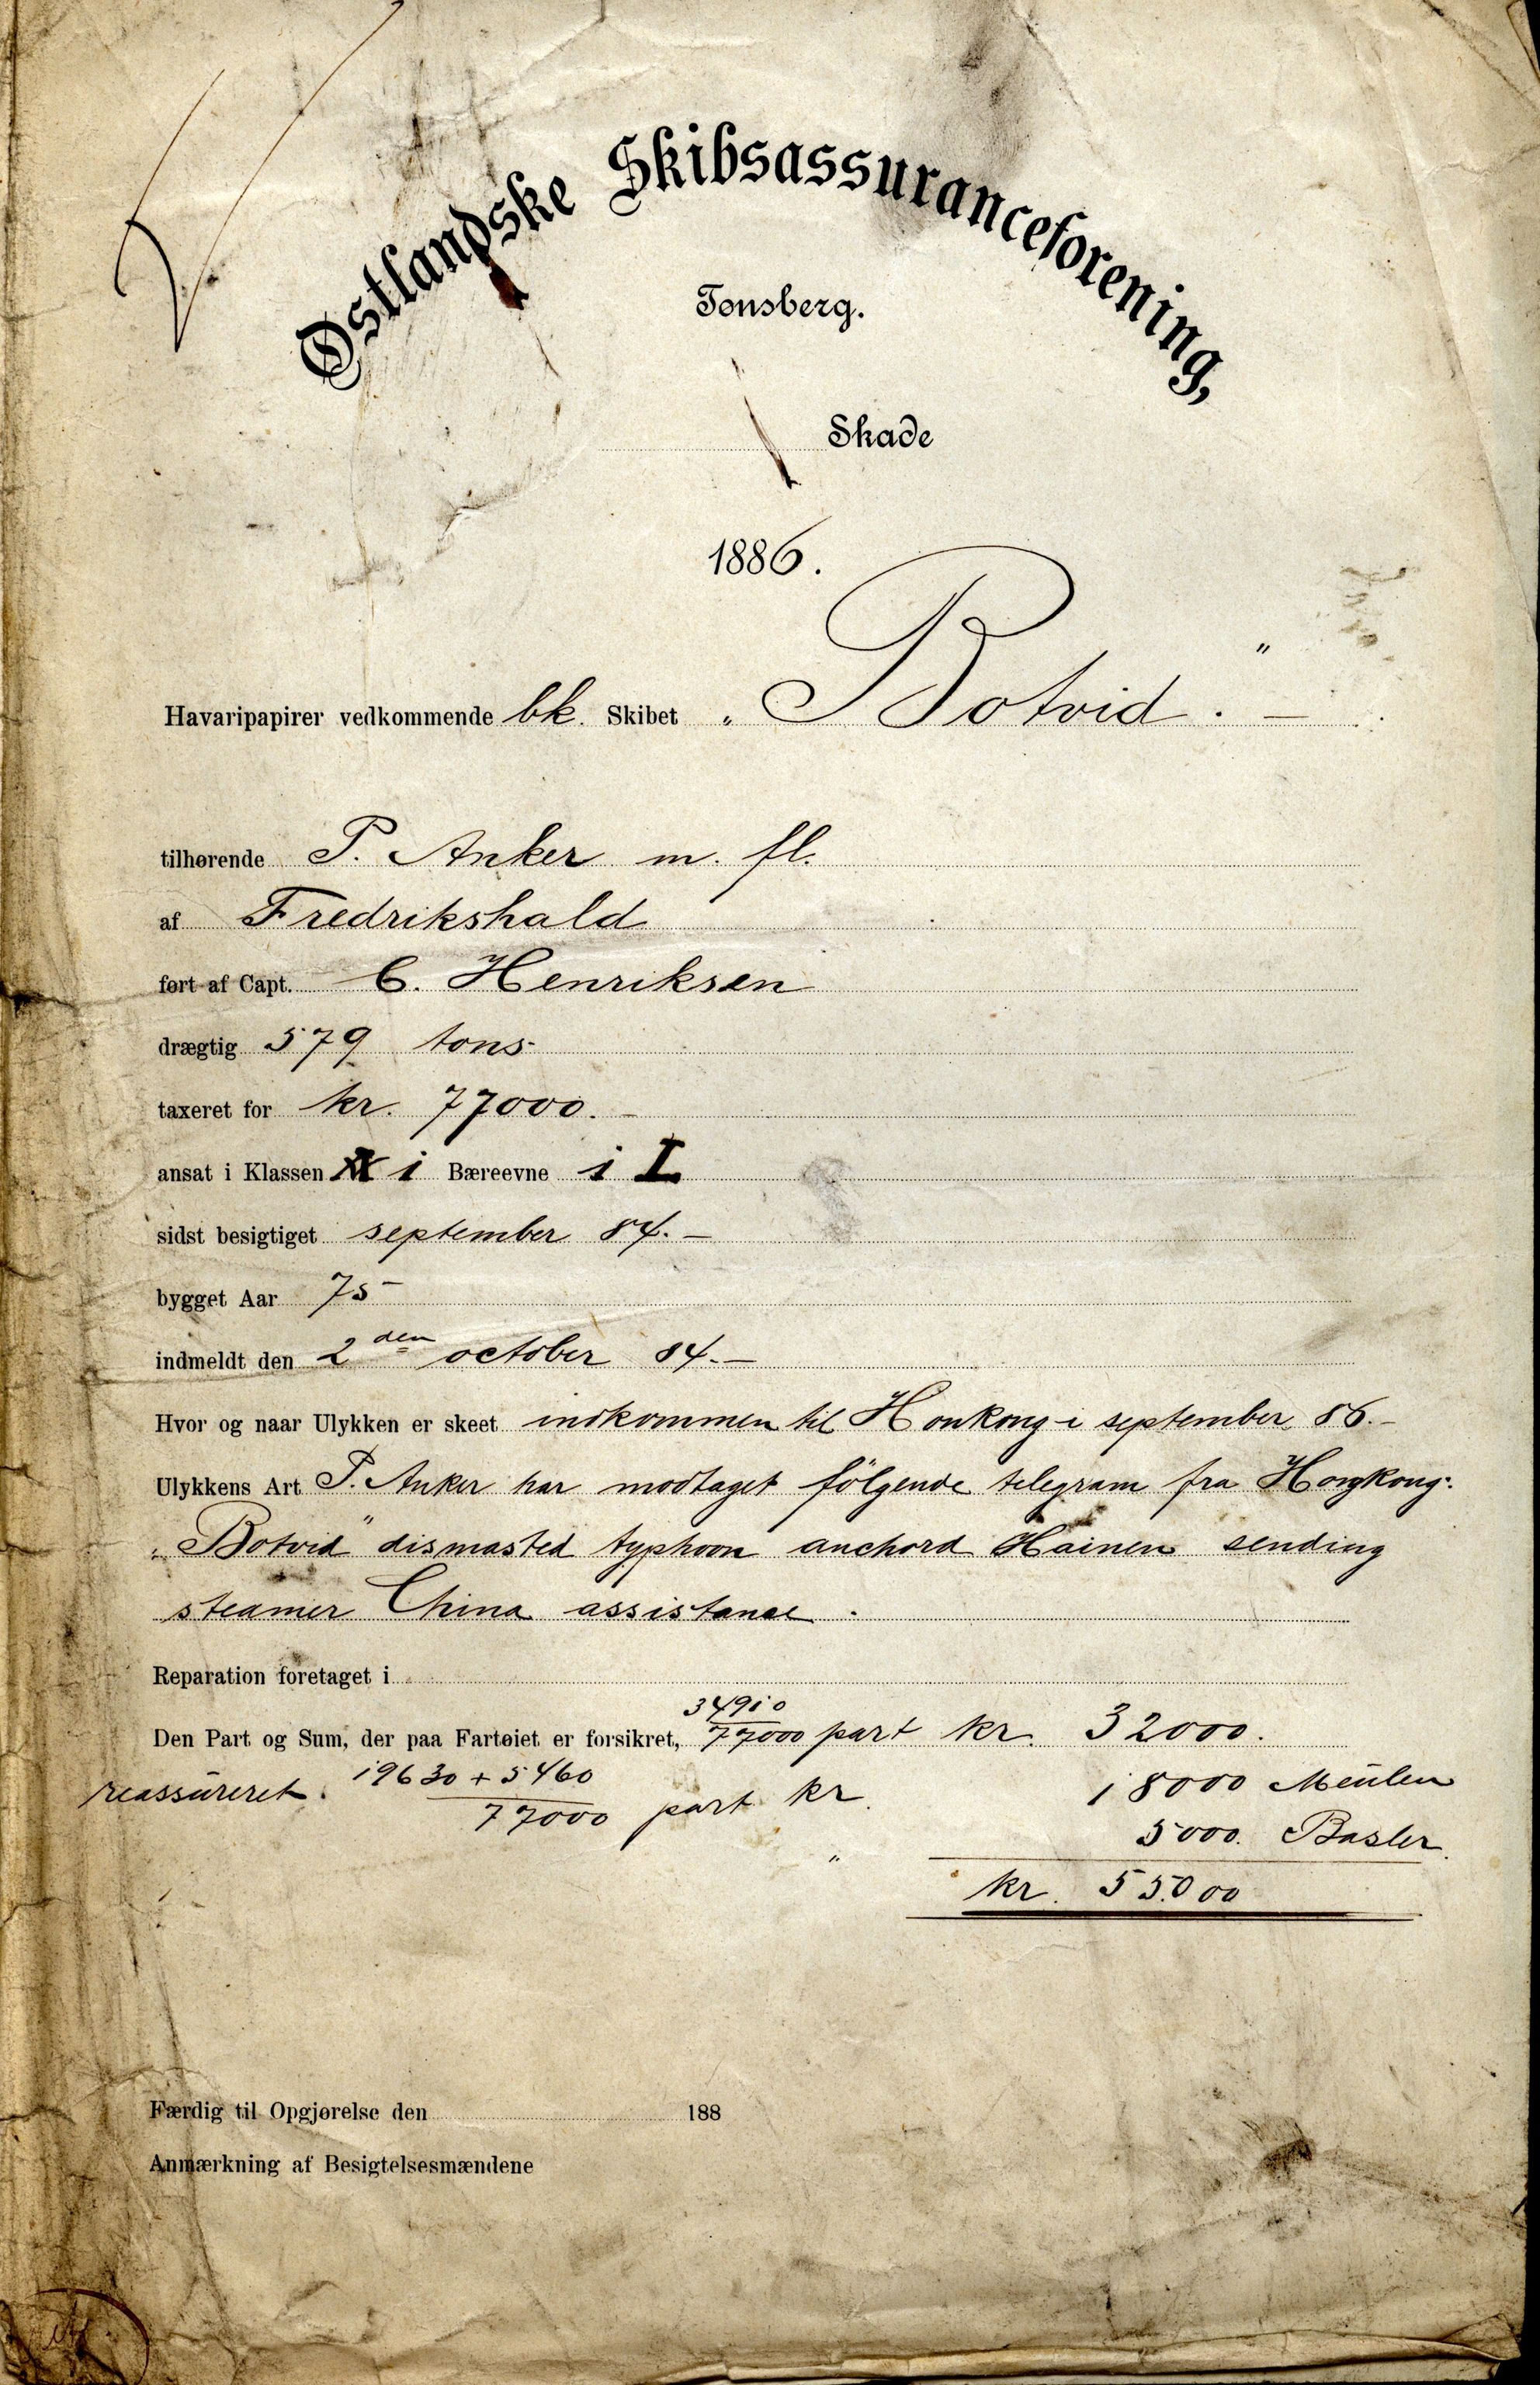 Østlandske Skibsassuranceforening,
Tønsberg.
Skade
1886.
Havaripapirer vedkommende bk. Skibet „Botvid.“ –
tilhørende P. Anker m. fl.
af Fredrikshald
ført af Capt. C. Henriksen
drægtig 579 tons
taxeret for kr. 77000. –
ansat i Klassen i Bæreevne i I
sidst besigtiget september 84. –
bygget Aar 75
indmeldt den 2den october 84. –
Hvor og naar Ulykken er skeet indkommen til Honkong i september 86. –
Ulykkens Art P. Anker har modtaget følgende telegram fra Hongkong:
„Botvid“ dismasted typhoon anchord Hainen sending
steamer China assistance.
Reparation foretaget i
Den Part og Sum, der paa Fartøiet er forsikret, 34910/77000 part kr. 32000.
reassureret. 19630 + 5460/77000 part kr. 18000 Meulen
" 5000. Basler.
kr. 55000
Færdig til Opgjørelse den 188
Anmærkning af Besigtelsesmændene